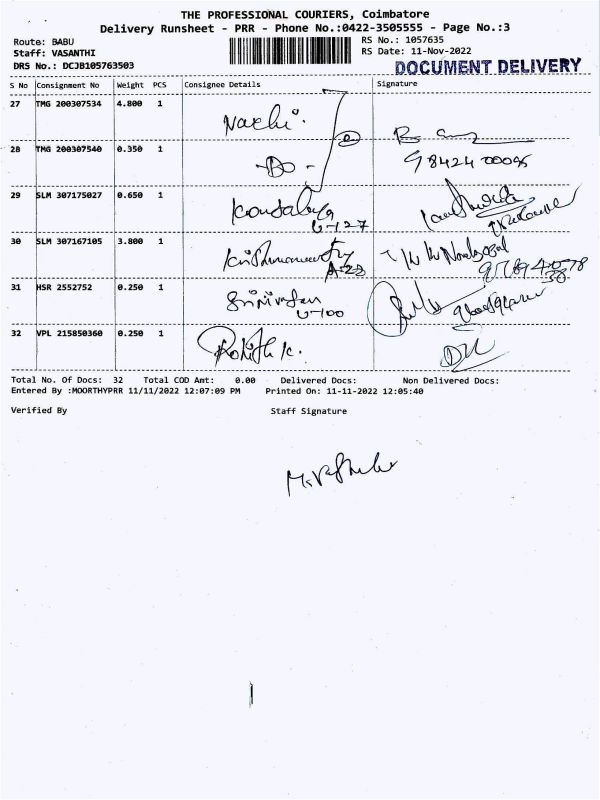 THE PROFESSIONAL COURIERS, Coimbatore
Delivery Runsheet - PRR - Phone No.:0422-3505555 - Page No.:3
Route: BABU
RS No.: 1057635
Staff: VASANTHI
RS Date: 11-Nov-2022
DRS No.: DCJB105763503
DOCUMENT DELIVERY
S No Consignment No Weight PCS Consignee Details Signature
27 TMG 200307534 4.800 1 Nachi
28 TMG 200307540 0.350 1 -Do-
29 SLM 307175027 0.650 1
30 SLM 307167105 3.800 1 A-22
31 HSR 2552752 0.250 1 Srinivasan
32 VPL 215850360 0.250 1 Rohith K.
Total No. Of Docs: 32 Total COD Amt: 0.00 Delivered Docs: Non Delivered Docs:
Entered By :MOORTHYPRR 11/11/2022 12:07:09 PM Printed On: 11-11-2022 12:05:40
Verified By Staff Signature